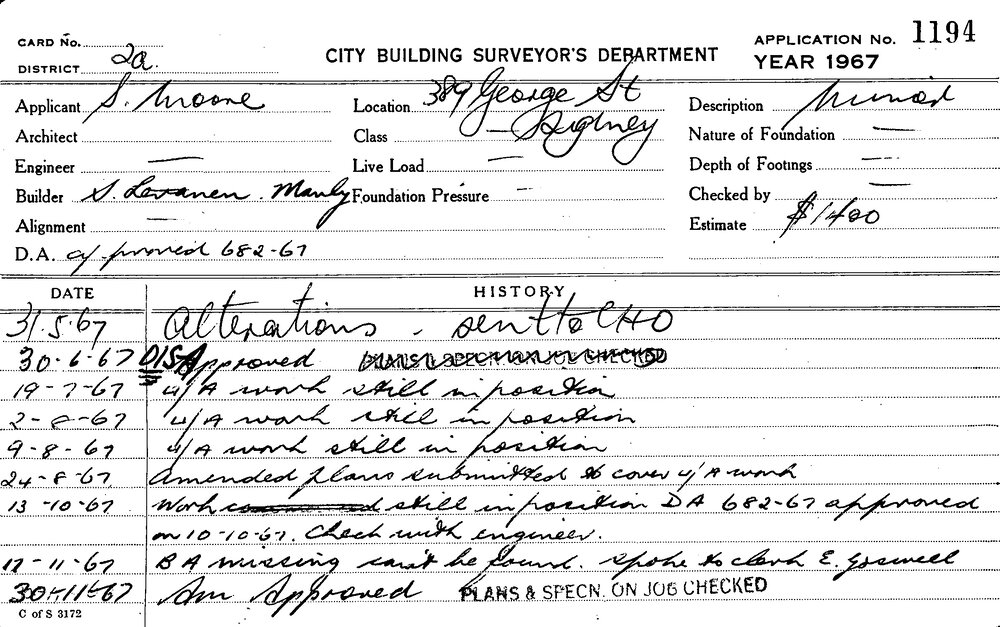 CARD No.
DISTRICT 2a
CITY BUILDING SURVEYOR'S DEPARTMENT
APPLICATION No. 1194
YEAR 1967
Applicant S. Moore
Location 389 George St
Sydney
Description Minor
Architect
Class —
Nature of Foundation —
Engineer —
Live Load —
Depth of Footings —
Builder S. Levanen. Manly
Foundation Pressure —
Checked by —
Alignment —
Estimate $1400
D.A. approved 682-67
DATE HISTORY
31.5.67 Alterations - sent to CHO
30-6-67 DISApproved PLANS & SPECN. ON JOB CHECKED
19-7-67 u/A work still in position
2-8-67 u/A work still in position
9-8-67 u/A work still in position
24-8-67 Amended plans submitted to cover u/A work
13-10-67 Work still in position DA 682-67 approved
on 10-10-67. Check with engineer.
17-11-67 BA missing can't be found. spoke to clerk E. Goswell
30-11-67 Am Approved PLANS & SPECN. ON JOB CHECKED
C of S 3172